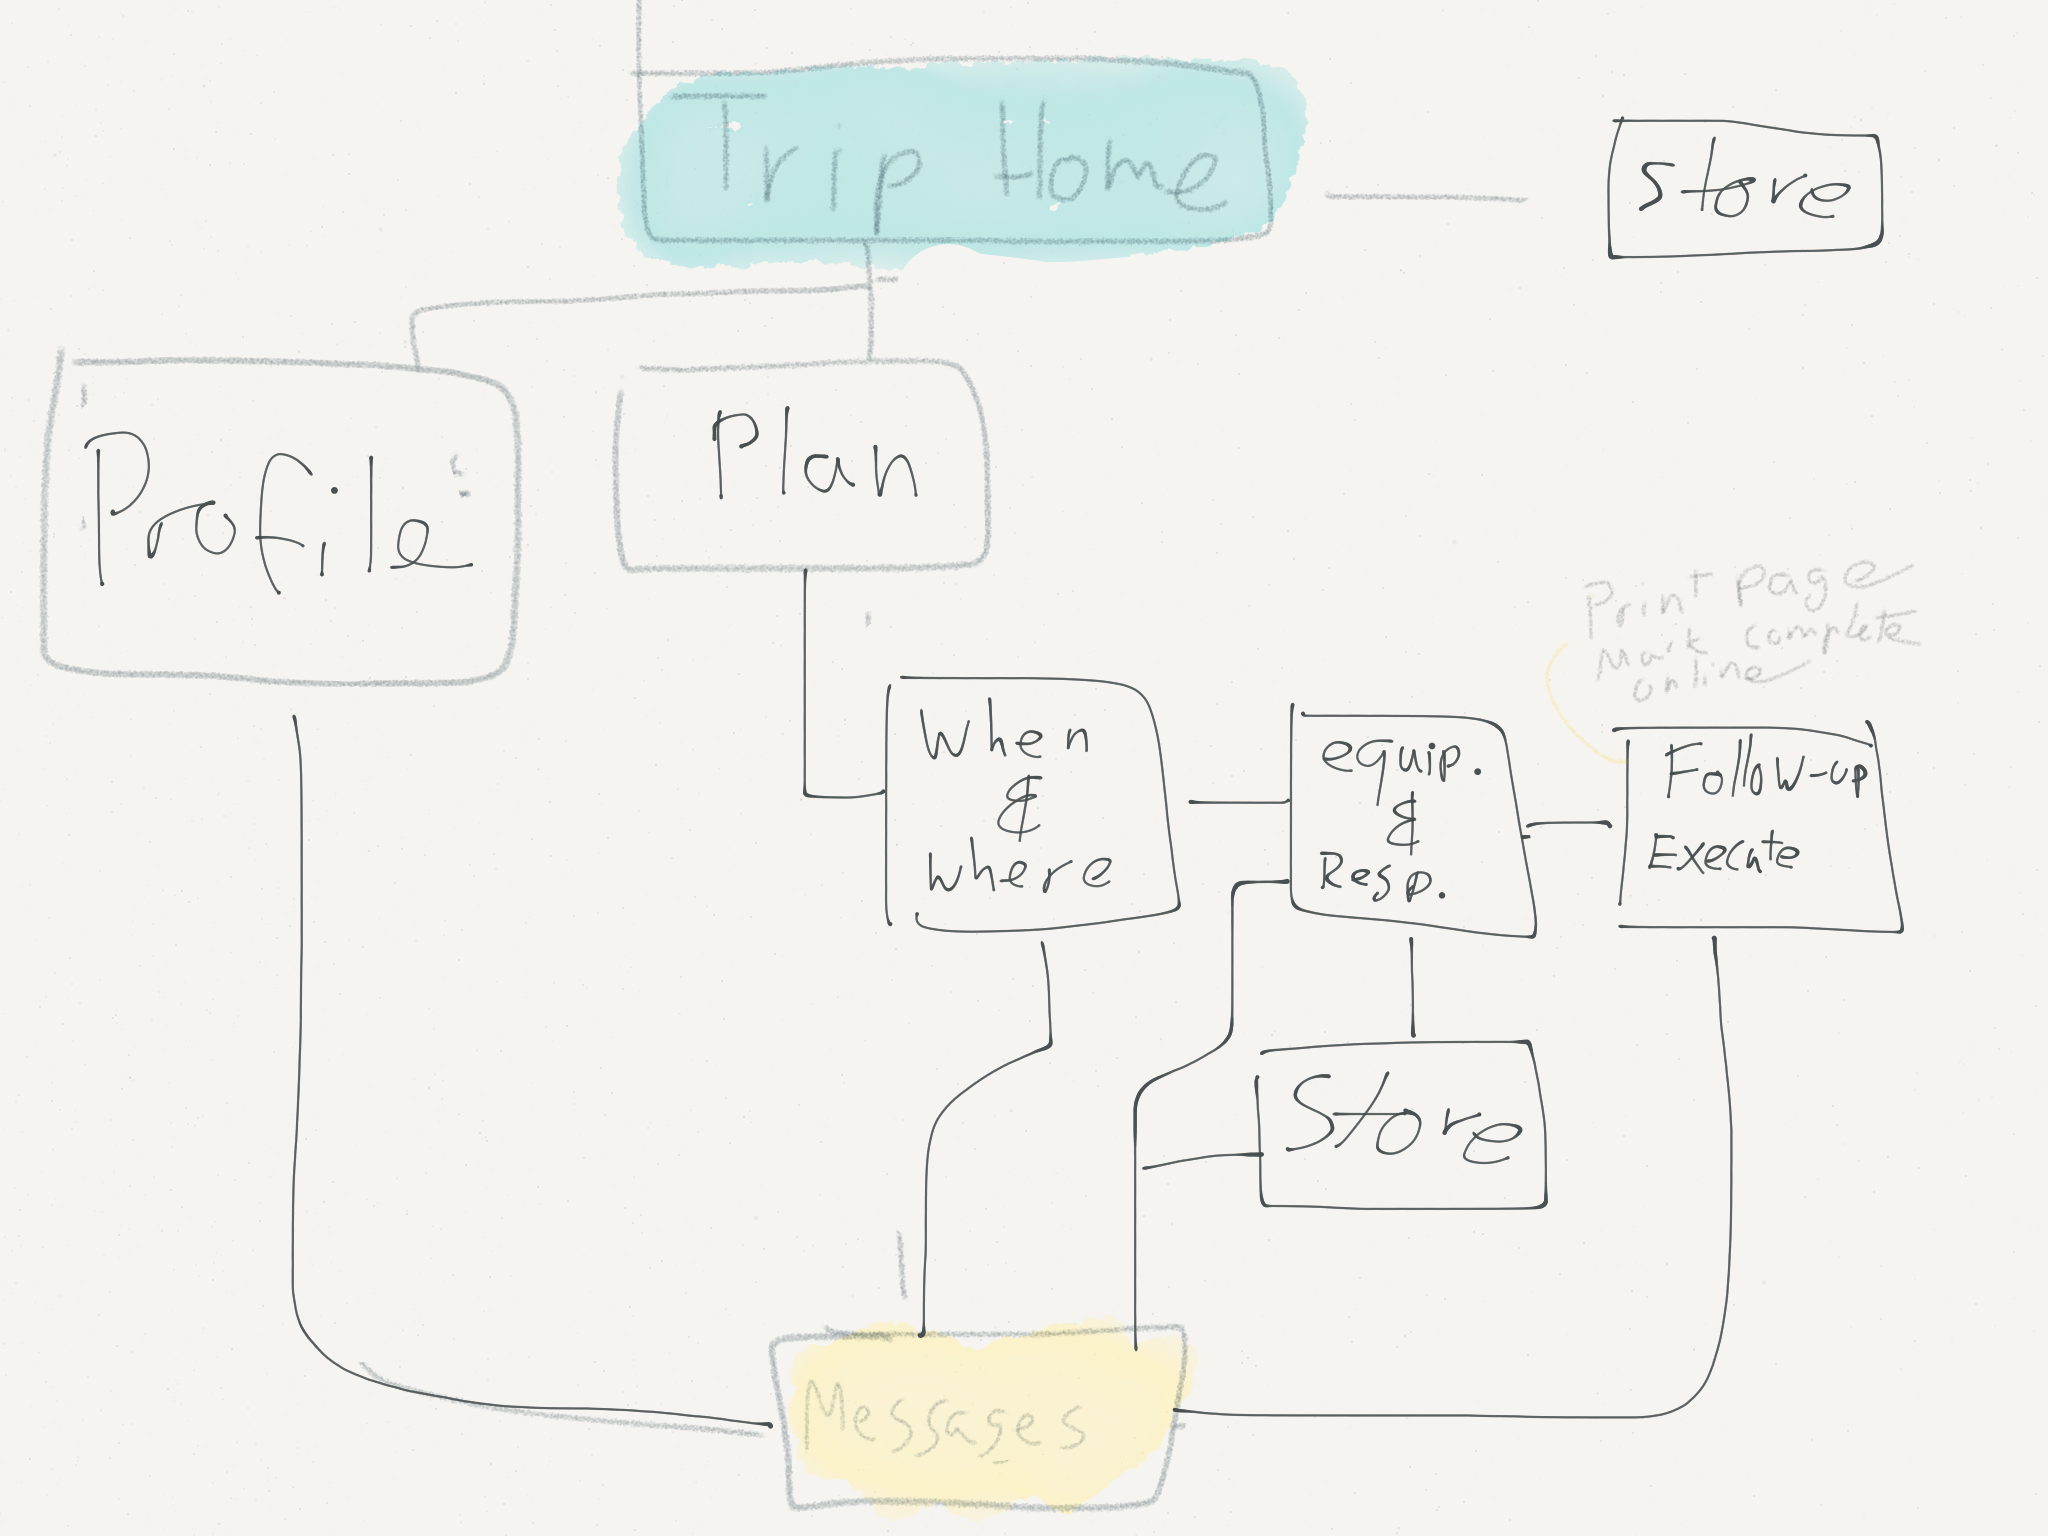 Trip Home
Store
Profile
Plan
Print page
Mark complete
online
When
&
where
equip.
&
Resp.
Follow-up
Execute
Store
Messages